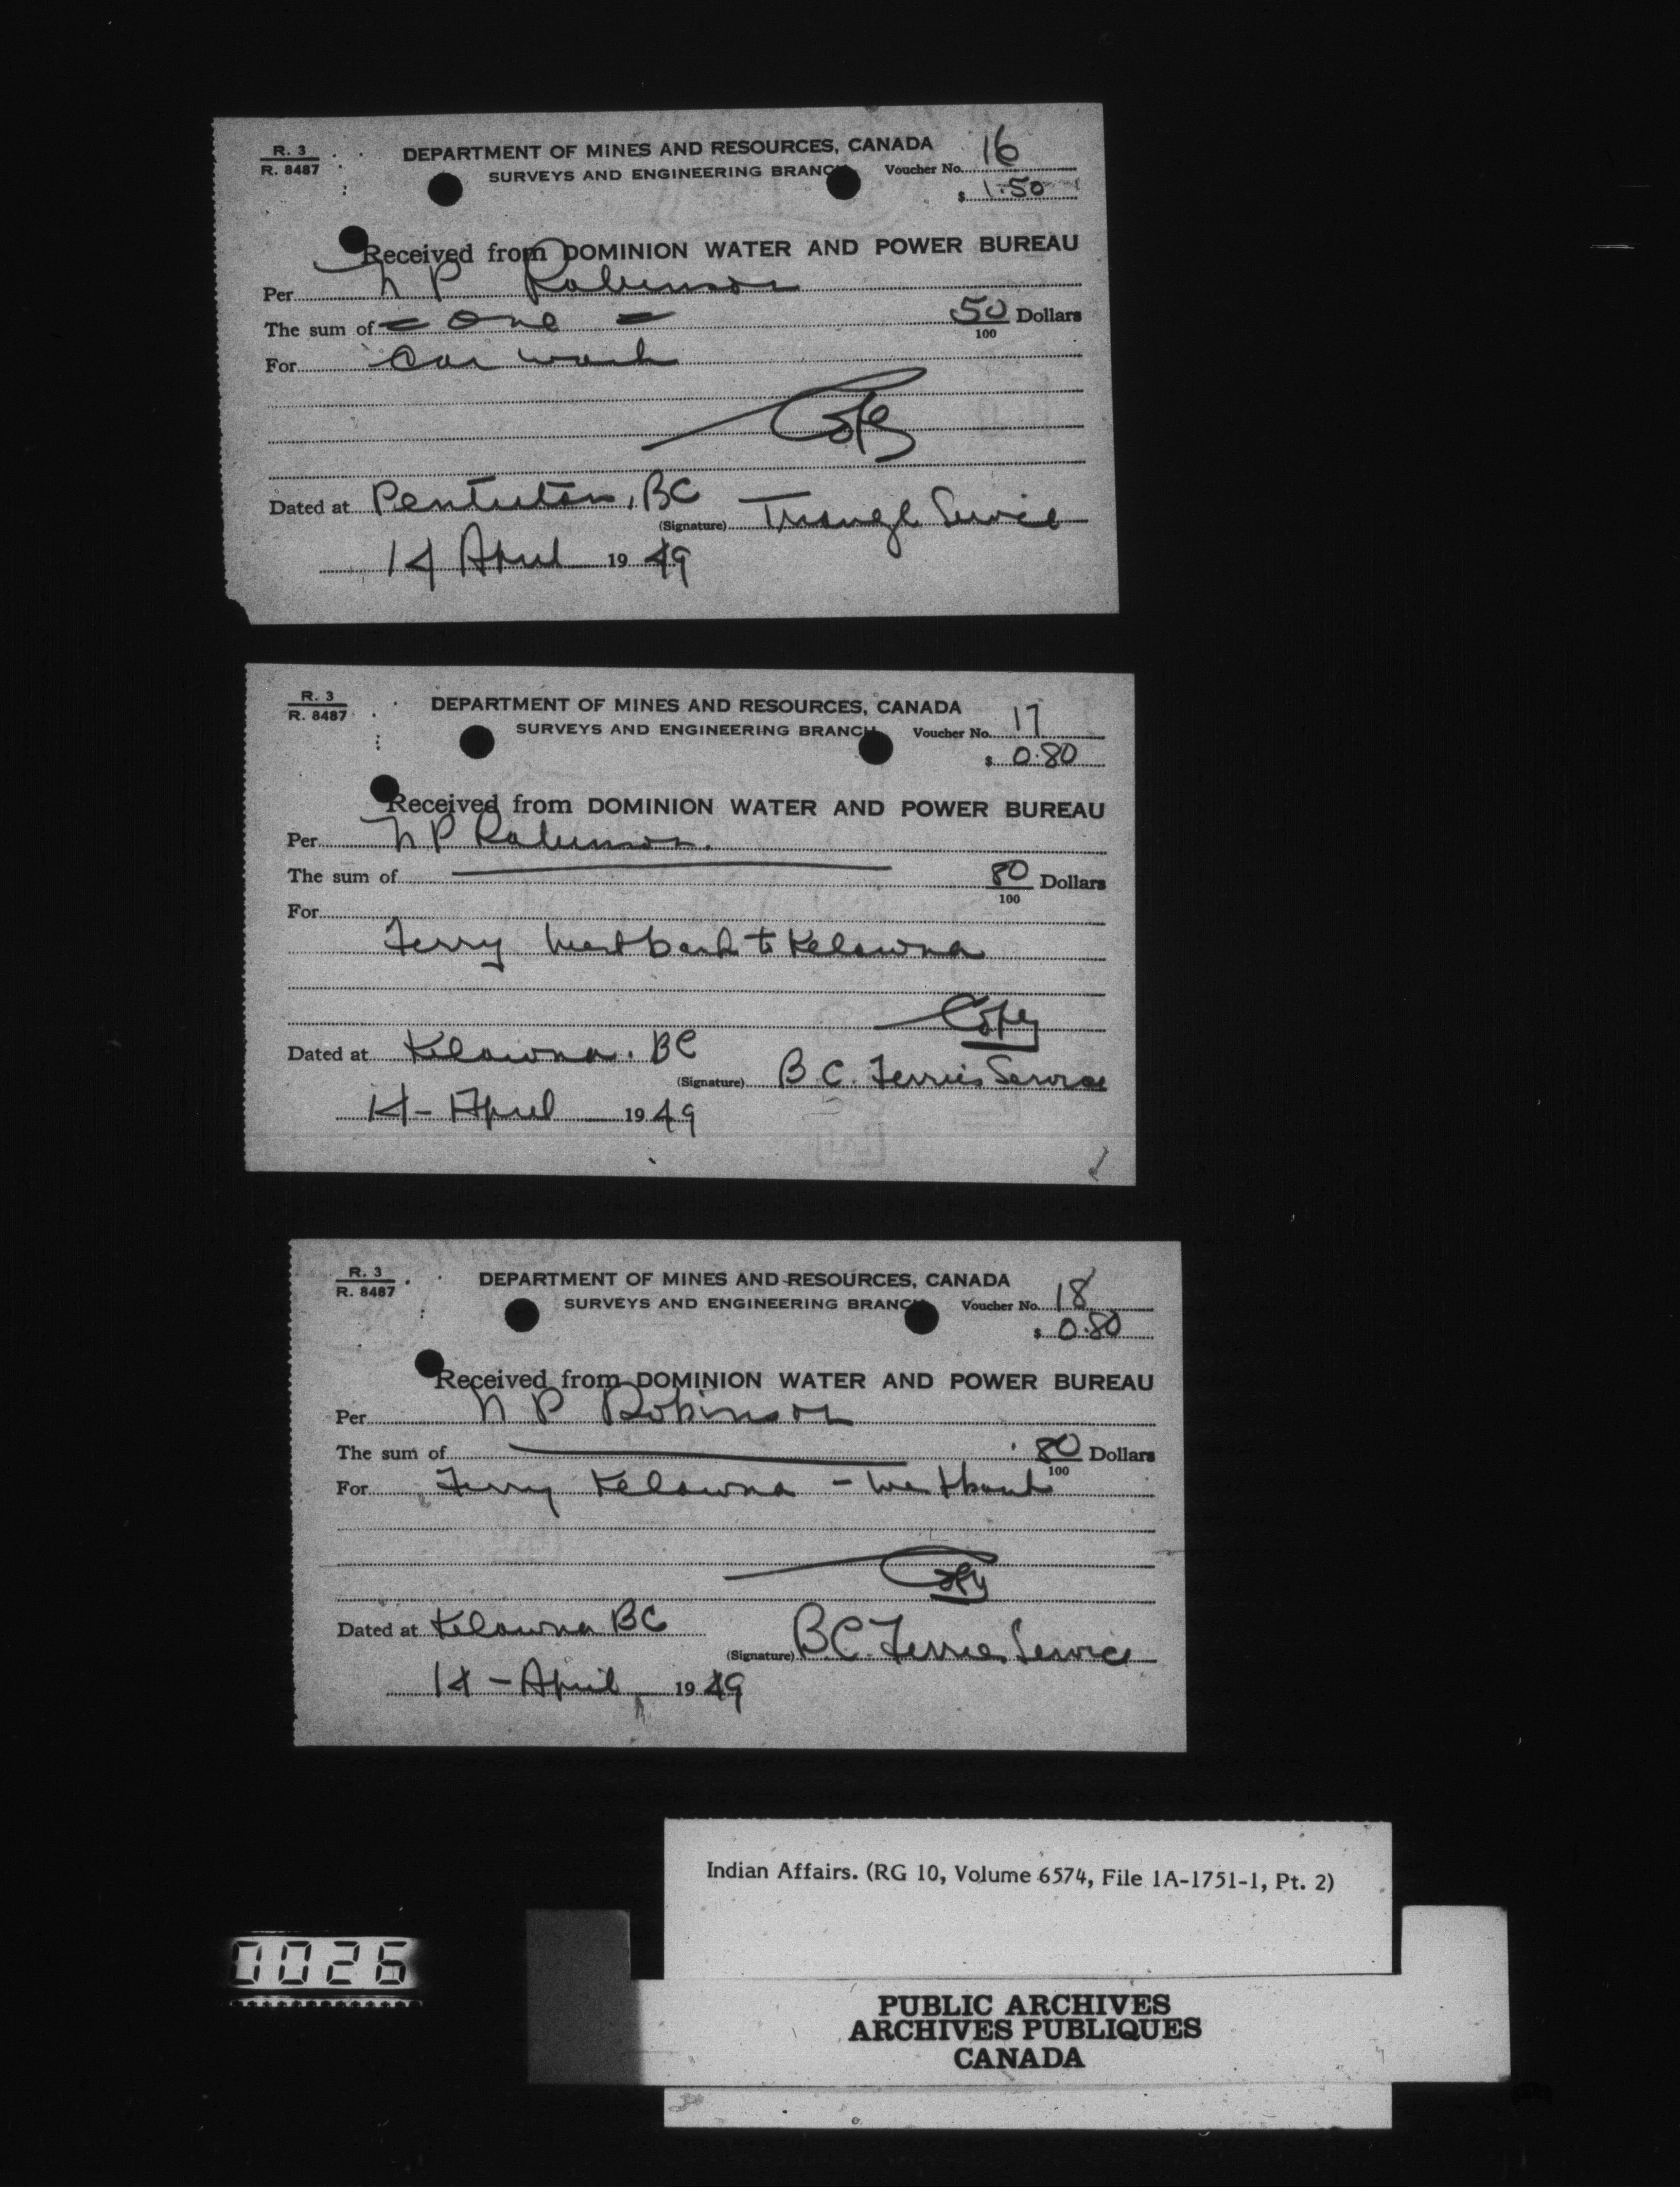 R. 3
R. 8487
DEPARTMENT OF MINES AND RESOURCES, CANADA
SURVEYS AND ENGINEERING BRANCH
Voucher No. 16
$ 1.50
Received from DOMINION WATER AND POWER BUREAU
Per N P Robinson
The sum of = One = 50/100 Dollars
For Car wash
Copy
Dated at Penticton, BC
(Signature) Triangle Service
14 April 1949
R. 3
R. 8487
DEPARTMENT OF MINES AND RESOURCES, CANADA
SURVEYS AND ENGINEERING BRANCH
Voucher No. 17
$ 0.80
Received from DOMINION WATER AND POWER BUREAU
Per N P Robinson.
The sum of 80/100 Dollars
For
Ferry Westbank to Kelowna
Copy
Dated at Kelowna. BC
(Signature) B.C. Ferries Service
14 - April 1949
R. 3
R. 8487
DEPARTMENT OF MINES AND RESOURCES, CANADA
SURVEYS AND ENGINEERING BRANCH
Voucher No. 18
$ 0.80
Received from DOMINION WATER AND POWER BUREAU
Per N P Robinson
The sum of 80/100 Dollars
For Ferry Kelowna - Westbank
Copy
Dated at Kelowna BC
(Signature) BC. Ferries Service
14 - April 1949
Indian Affairs. (RG 10, Volume 6574, File 1A-1751-1, Pt. 2)
0026
PUBLIC ARCHIVES
ARCHIVES PUBLIQUES
CANADA